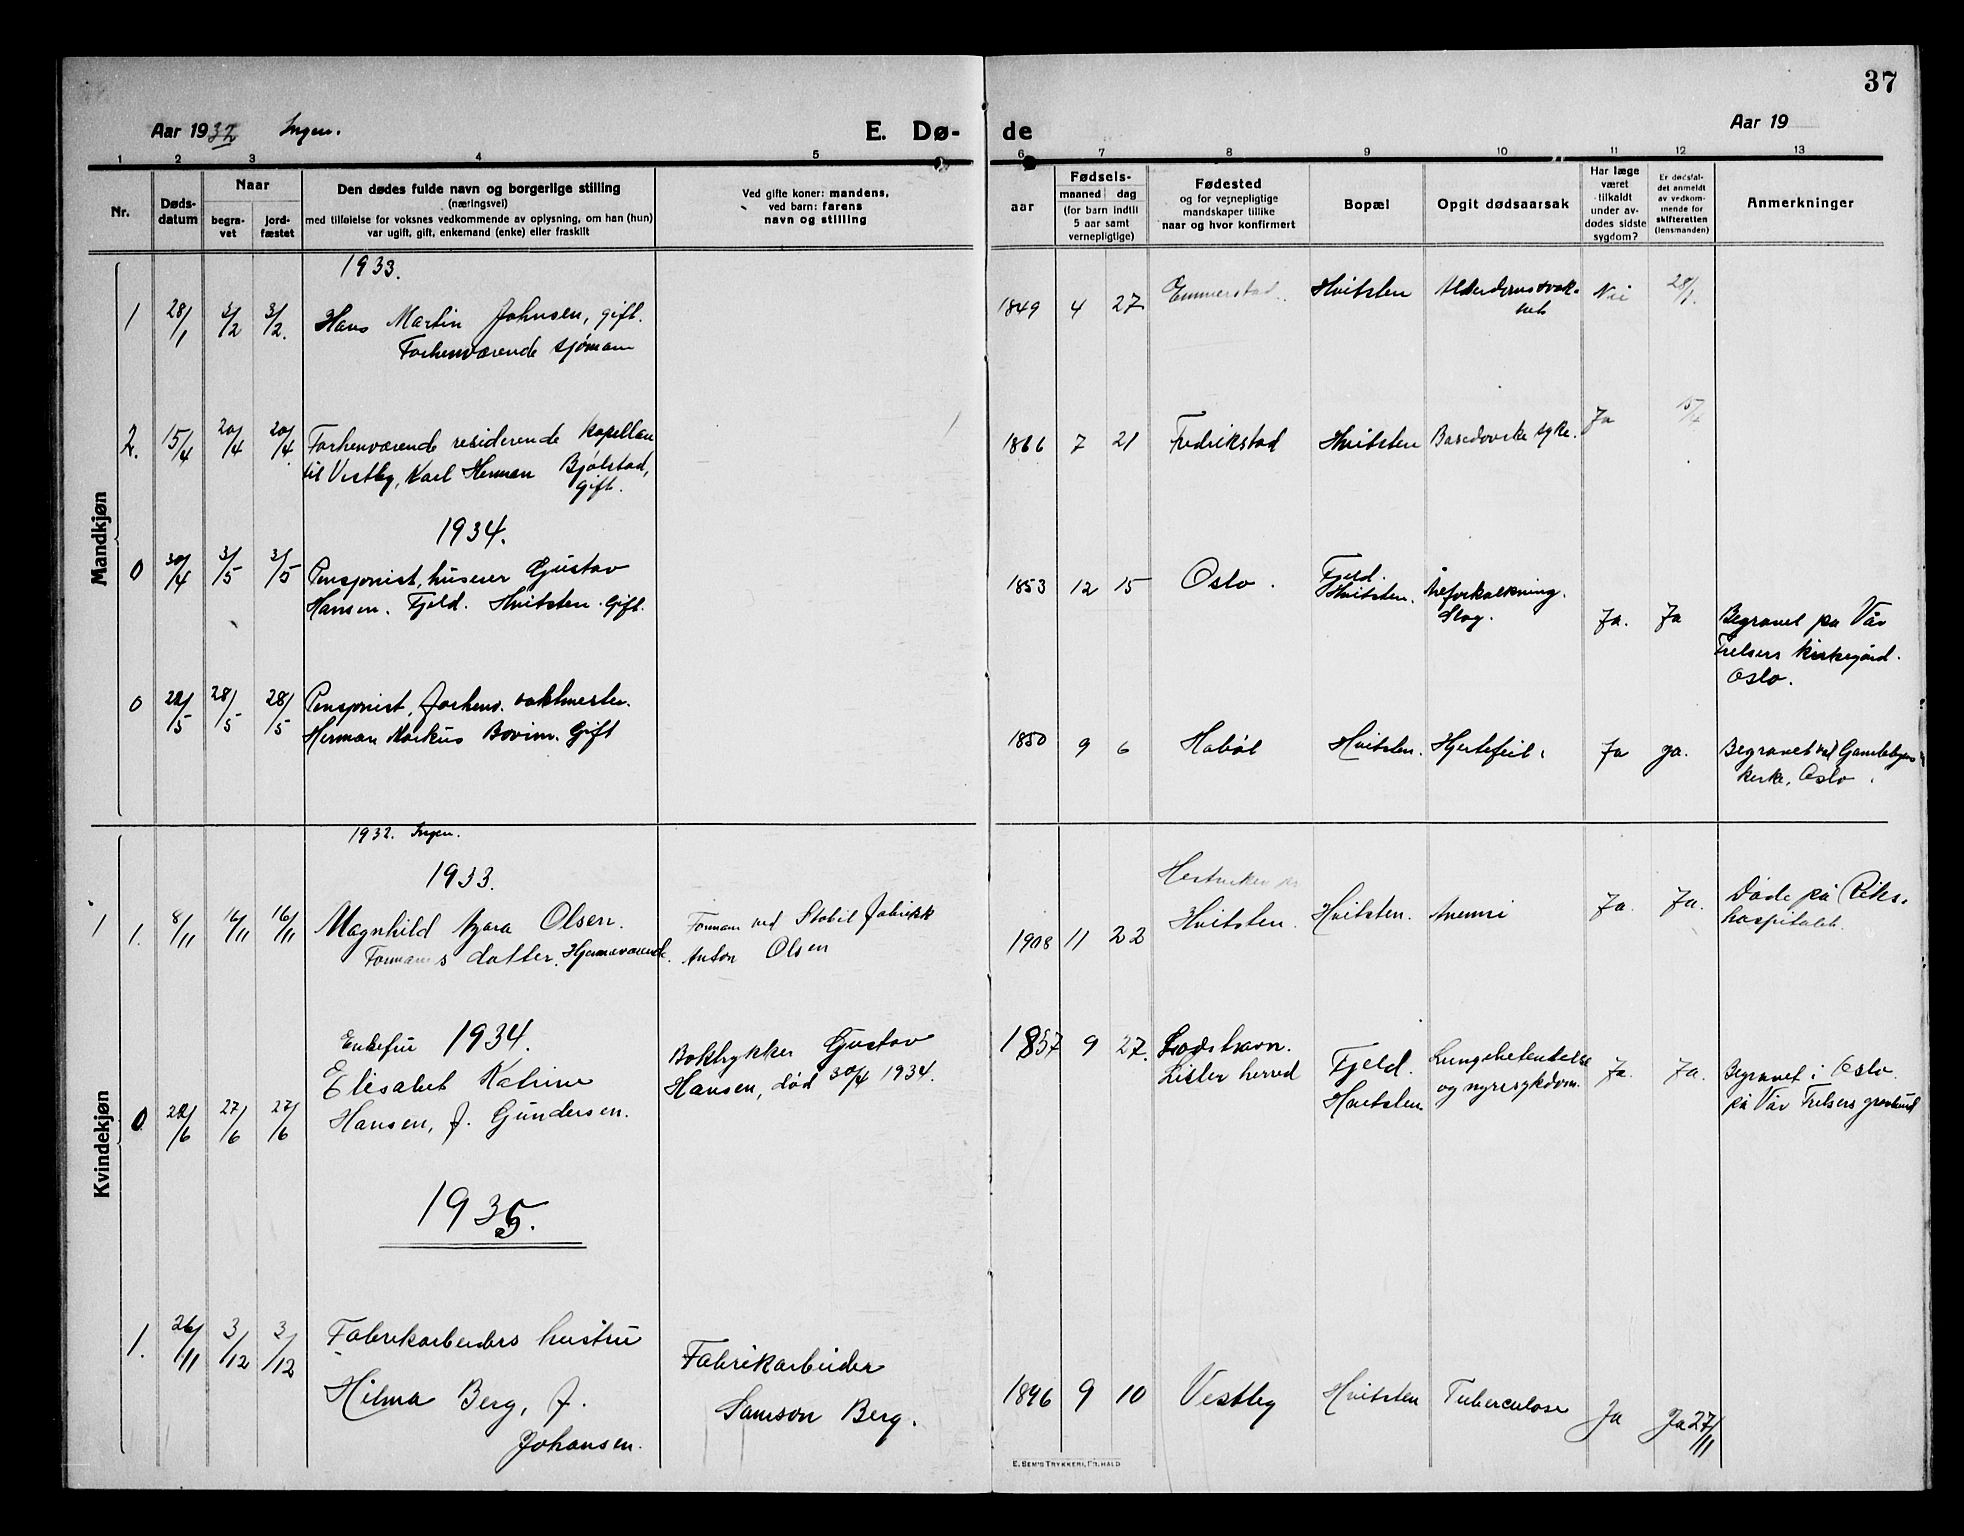 37
Aar 1932 Ingen.
E. Dø-
de
Aar 19
1 2 3 4 5 6 7 8 9 10 11 12 13
Nr.
Døds-
datum
Naar
begra-
vet
jord-
fæstet
Den dødes fulde navn og borgerlige stilling
(næringsvei)
med tilføielse for voksnes vedkommende av oplysning, om han (hun)
var ugift, gift, enkemand (enke) eller fraskilt
Ved gifte koner: mandens,
ved barn: farens
navn og stilling
Fødsels-
aar
maaned dag
(for barn indtil
5 aar samt
vernepligtige)
Fødested
og for vernepligtige
mandskaper tillike
naar og hvor konfirmert
Bopæl
Opgit dødsaarsak
Har læge
været
tilkaldt
under av-
dødes sidste
sygdom?
Er dødsfal-
det anmeldt
av vedkom-
mende for
skifteretten
(lensmanden)
Anmerkninger
Mandkjøn
1933.
1 28/1 3/2 3/2. Hans Martin Johnsen, gift.
Forhenværende sjømann
1849 4 27 Emmerstad Hvitsten Alderdomssvak-
het Nei 28/1.
2. 15/4 20/4 20/4. Forhenværende residerende kapellan
til Vestby, Karl Herman Bjølstad,
gift.
1866 7 21 Fredrikstad Hvitsten Basedowske syke. Ja 15/4
1934.
0 30/4 3/5 3/5 Pensjonist, huseier Gustav
Hansen. Fjeld. Hvitsten. Gift.
1853 12 15 Oslo. Fjeld.
Hvitsten. Åreforkalkning.
Slag. Ja. Ja Begravet på Vår
Frelsers kirkegård.
Oslo.
0 22/5 28/5 28/5 Pensjonist, forhenv. vaktmester.
Herman Markus Bovim. Gift
1850 9 6 Hobøl Hvitsten. Hjertefeil. Ja ja. Begravet ved Gamlebyens
kirke, Oslo.
Kvindekjøn
1932. Ingen.
1933.
1 1. 8/11 16/11 16/11 Magnhild Olsen.
Formanns datter. Hjemmeværende.
Formann ved Stabil Fabrikk
Anton Olsen
1908 11 22 Hvitsten. Hvitsten. Anemi Ja. Ja. Døde på Riks-
hospitalet.
1934.
Enkefru
0 22/6 27/6 27/6 Elisabet Katrine
Hansen, f. Gundersen.
Boktrykker Gustav
Hansen, død 30/4 1934.
1857 9 27. Loshavn.
Lister herred Fjeld.
Hvitsten Lungebetendelse
og nyresykdom. Ja. Ja. Begravet i Oslo.
på Vår Frelsers gravlund
1935.
1. 26/11 3/12 3/12 Fabrikarbeiders hustru
Hilma Berg, f.
Johansen.
Fabrikarbeider
Samson Berg.
1896 9 10 Vestby Hvitsten Tuberculose Ja Ja 27/11
E. Sem's Trykkeri, Fr.hald